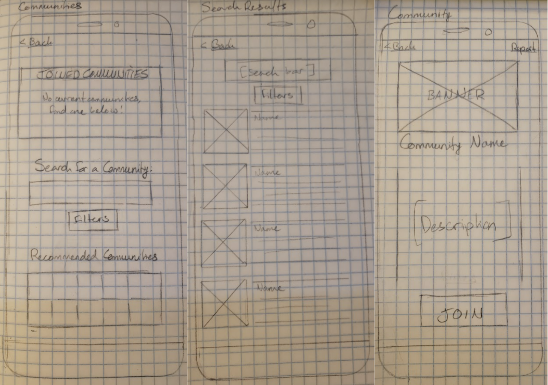 Communities
< Back
JOINED COMMUNITIES
No current communities,
find one below!
Search for a Community:
Filters
Recommended Communities
Search Results
< Back
[Search bar]
Filters
Name
Name
Name
Name
Community
< Back
Report
BANNER
Community Name
[Description]
JOIN